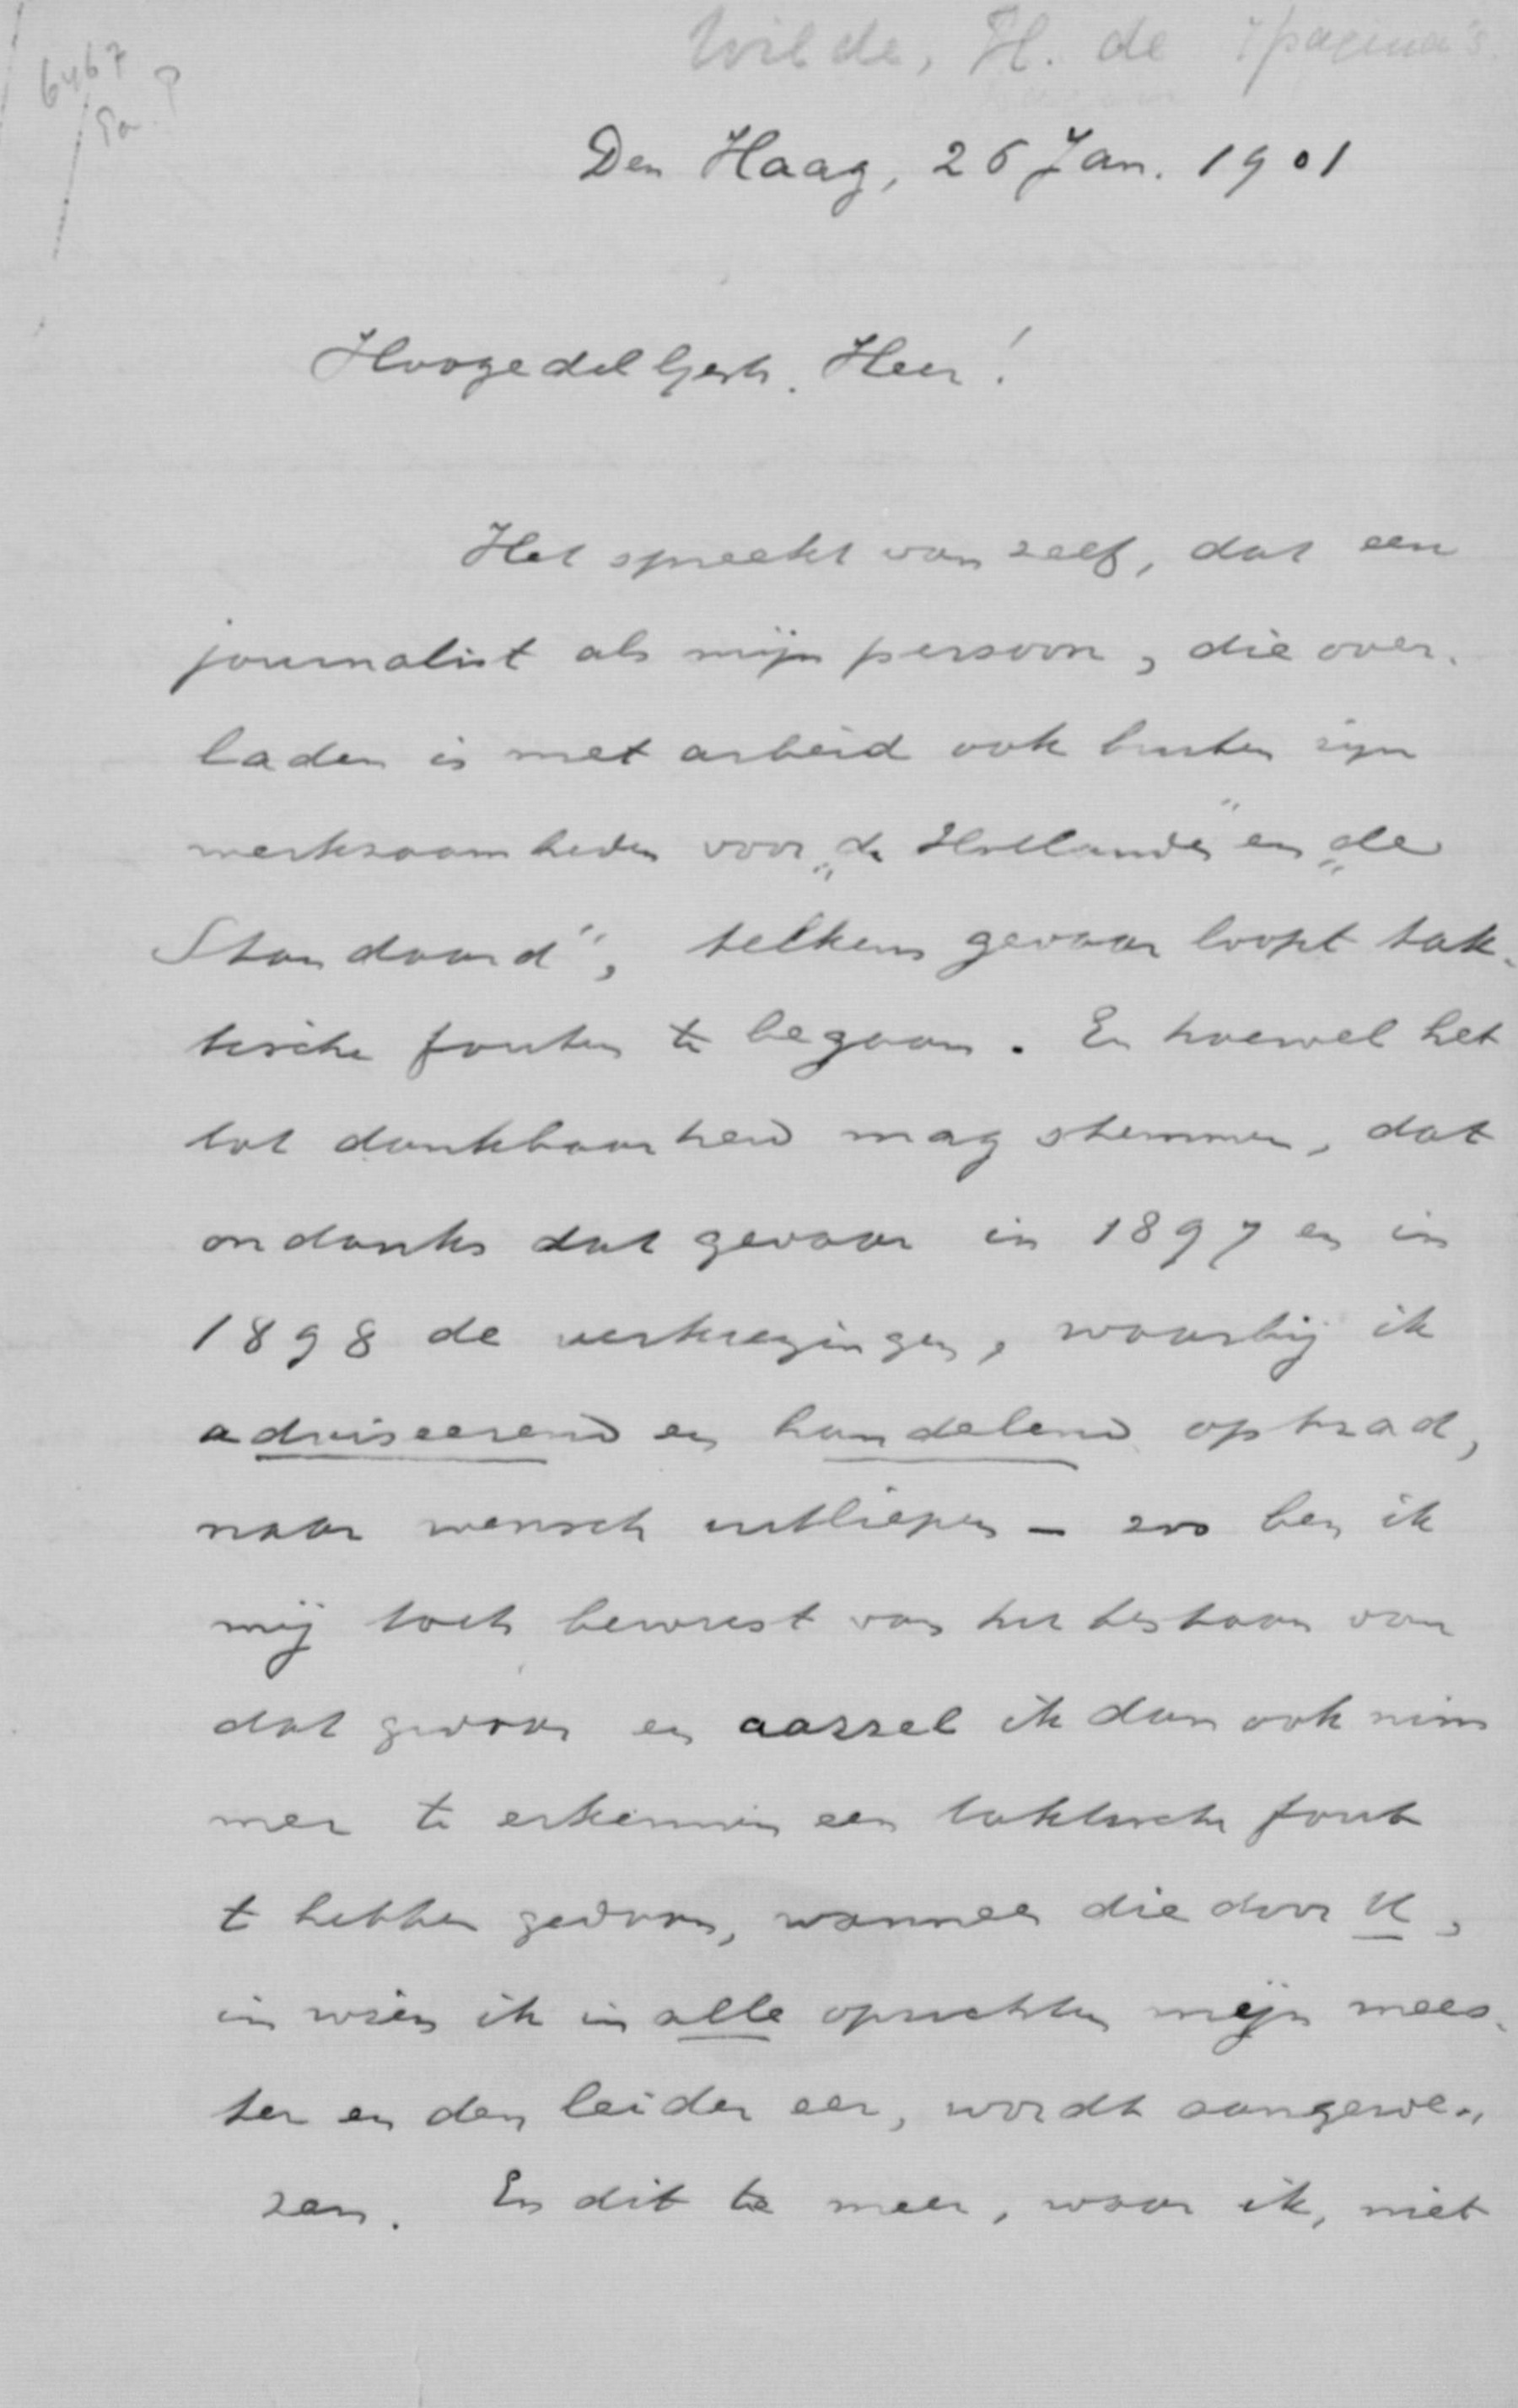 Wilde, H. de 7 pagina's
6467
Den Haag, 26 Jan. 1901
HoogedelGestr. Heer!
Het spreekt van zelf, dat een
journalist als mijn persoon, die over-
laden is met arbeid ook buiten zijn
werkzaamheden voor „de Hollander" en „de
Standaard", telkens gevaar loopt tak-
tische fouten te begaan. En hoewel het
tot dankbaarheid mag stemmen, dat
ondanks dat gevaar in 1897 en in
1898 de verkiezingen, waarbij ik
adviseerend en handelend optrad,
naar wensch uitliepen – zoo ben ik
mij toch bewust van het bestaan van
dat gevaar en aarzel ik dan ook nim
mer te erkennen een taktische fout
te hebben gedaan, wanneer die door U,
in wien ik in alle opzichten mijn mees-
ter en den leider eer, wordt aangewe-
zen. En dit te meer, waar ik, niet